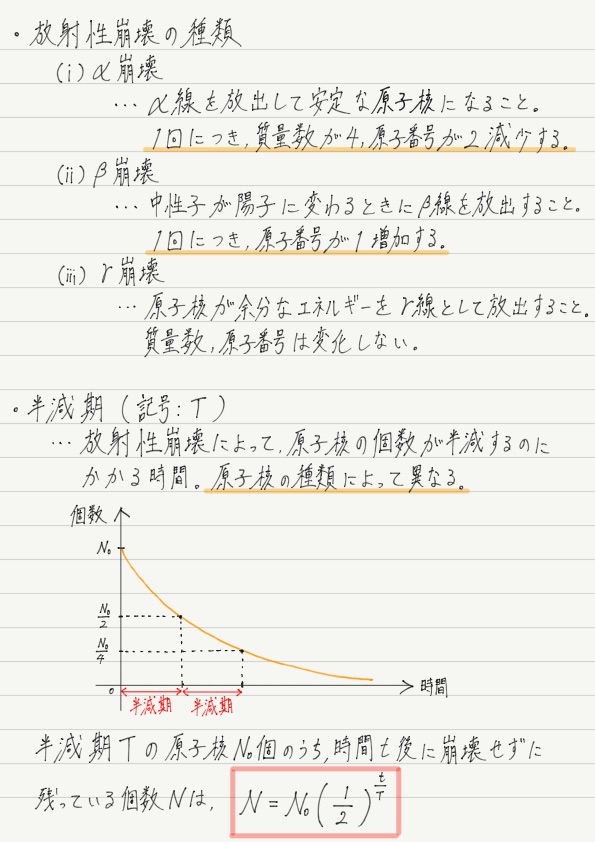 ・放射性崩壊の種類
(i) α崩壊
… α線を放出して安定な原子核になること。
1回につき,質量数が4,原子番号が2減少する。
(ii) β崩壊
… 中性子が陽子に変わるときにβ線を放出すること。
1回につき,原子番号が1増加する。
(iii) γ崩壊
… 原子核が余分なエネルギーをγ線として放出すること。
質量数,原子番号は変化しない。
・半減期 (記号:T)
… 放射性崩壊によって,原子核の個数が半減するのに
かかる時間。原子核の種類によって異なる。
個数
N₀
N₀/2
N₀/4
0
時間
半減期 半減期
半減期Tの原子核N₀個のうち,時間t後に崩壊せずに
残っている個数Nは, N = N₀(1/2)^(t/T)